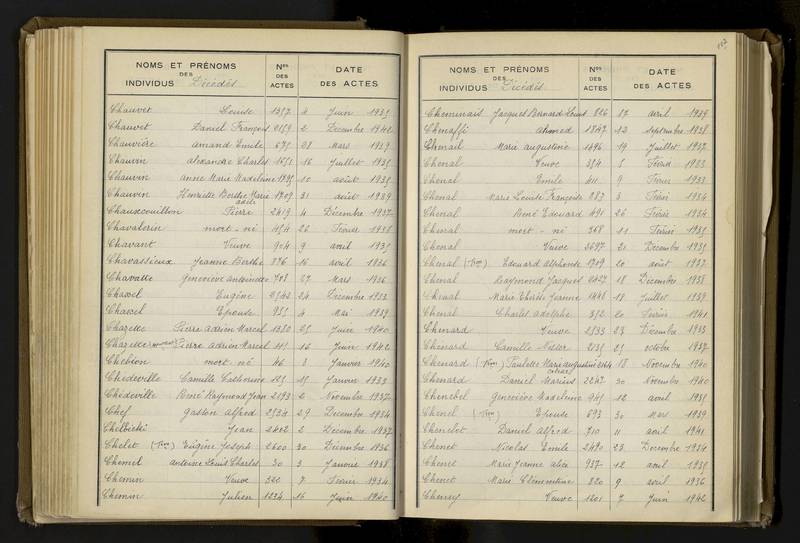 NOMS ET PRÉNOMS DES INDIVIDUS Décédés Nos DES ACTES DATE DES ACTES
Chauvet Louise 1397 4 Juin 1935
Chauvet Daniel François 2 Décembre 1942
Chauvière Amand Emile 675 28 Mars 1939
Chauvin Alexandre Charles 1651 16 Juillet 1935
Chauvin Anne Marie Madeleine 1795 10 août 1935
Chauvin Henriette Berthe Marie 1709 31 août 1939
Chauxcouillon Pierre 2419 4 Décembre 1937
Chavalerin mort-né 454 26 Février 1938
Chavant Veuve 904 9 avril 1935
Chavassieux Jeanne Berthe 876 16 avril 1936
Chavatte Geneviève antoinette 708 27 Mars 1936
Chavel Eugène 2542 24 Décembre 1933
Chavel Epouse 955 4 Mai 1939
Chazette Pierre Adrien Marcel 1380 25 Juin 1940
Chazette Pierre Adrien Marcel 16 Juin 1942
Chebion mort né 46 3 Janvier 1940
Chedeville Camille Catherine 125 15 Janvier 1933
Chedeville René Raymond Jean 2193 2 Novembre 1937
Chef Gaston Alfred 2534 29 Décembre 1934
Chelbicki Jean 2402 2 Décembre 1937
Chelet Eugène Joseph 2600 30 Décembre 1936
Chemel Antoine Louis Charles 30 3 Janvier 1938
Chemin Veuve 322 7 Février 1934
Chemin Julien 1234 16 Juin 1940
NOMS ET PRÉNOMS DES INDIVIDUS Décédés Nos DES ACTES DATE DES ACTES
Cheminais Jacques Bernard Louis 826 17 avril 1939
Chenaffi Ahmed 1847 12 Septembre 1938
Chenail Marie Augustine 1496 19 Juillet 1937
Chenal Veuve 354 5 Février 1933
Chenal Emile 411 9 Février 1933
Chenal Marie Louise Françoise 287 3 Février 1934
Chenal René Edouard 491 26 Février 1934
Chenal mort-né 368 11 Février 1935
Chenal Veuve 2697 21 Décembre 1935
Chenal Edouard Alphonse 1709 20 août 1937
Chenal Raymond Jacques 2427 18 Décembre 1938
Chenal Marie Thérèse Jeanne 1448 18 Juillet 1939
Chenal Charles Adolphe 352 20 Février 1941
Chenard Veuve 2533 23 Décembre 1933
Chenard Camille 2135 25 octobre 1937
Chenard Paulette Marie Augustine 2144 18 Novembre 1940
Chenard Daniel Marius 2247 30 Novembre 1940
Chenebel Geneviève Madeleine 945 12 avril 1935
Chenel Epouse 693 30 Mars 1939
Chenelot Daniel Alfred 710 11 avril 1941
Chenet Nicolas Emile 2490 23 Décembre 1934
Chenet Marie Jeanne Alice 937 12 avril 1935
Chenet Marie Clémentine 820 9 avril 1936
Veuve 1201 7 Juin 1942